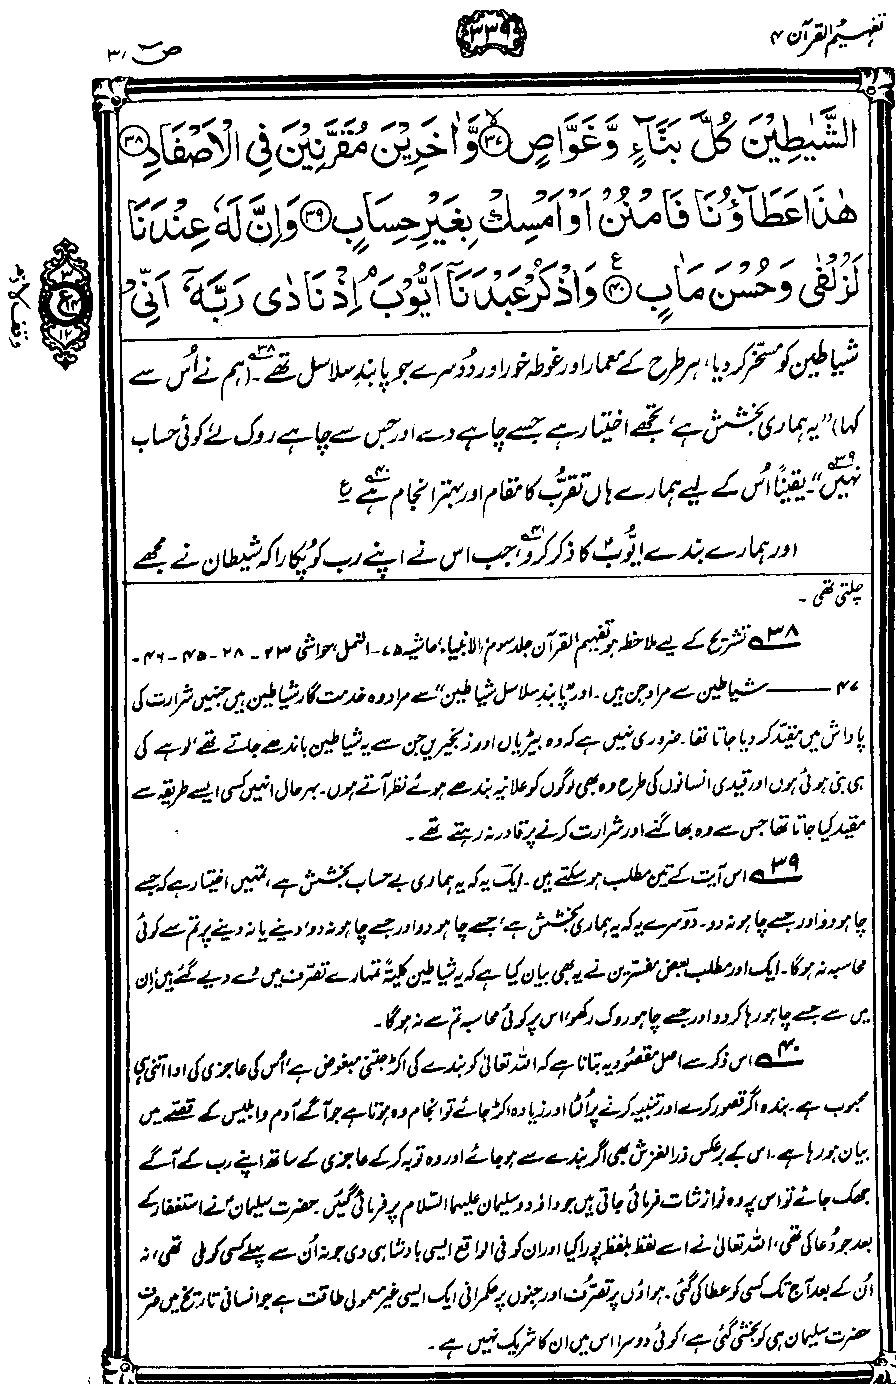 تفہیم القرآن ۴
۳۳۹
ص ۳۸
الشَّيٰطِيْنَ كُلَّ بَنَّآءٍ وَّغَوَّاصٍ ۙ﴿۳۷﴾ وَّاٰخَرِيْنَ مُقَرَّنِيْنَ فِى الْاَصْفَادِ ﴿۳۸﴾
هٰذَا عَطَآؤُنَا فَامْنُنْ اَوْ اَمْسِكْ بِغَيْرِ حِسَابٍ ﴿۳۹﴾ وَاِنَّ لَهٗ عِنْدَنَا
لَزُلْفٰى وَحُسْنَ مَاٰبٍ ﴿۴۰﴾ ع وَاذْكُرْ عَبْدَنَآ اَيُّوْبَ ۘ اِذْ نَادٰى رَبَّهٗٓ اَنِّىْ
۳
ع
۱۲
شیاطین کو مسخر کر دیا، ہر طرح کے معمار اور غوطہ خور اور دُوسرے جو پابندِ سلاسل تھے۳۸۔ (ہم نے اُس سے
کہا) ”یہ ہماری بخشش ہے، تجھے اختیار ہے جسے چاہے دے اور جس سے چاہے روک لے، کوئی حساب
نہیں“۳۹۔ یقیناً اُس کے لیے ہمارے ہاں تقرُّب کا مقام اور بہتر انجام ہے۴۰ ع
اور ہمارے بندے ایّوبؑ کا ذکر کرو۴۱، جب اس نے اپنے رب کو پُکارا کہ شیطان نے مجھے
چلتی تھی۔
۳۸ تشریح کے لیے ملاحظہ ہو تفہیم القرآن جلد سوم، الانبیاء، حاشیہ ۷۵۔ النمل، حواشی ۲۳۔ ۲۸۔ ۴۵۔ ۴۶۔
۴۷ —— شیاطین سے مراد جن ہیں۔ اور ”پابندِ سلاسل شیاطین“ سے مراد وہ خدمت گار شیاطین ہیں جنہیں شرارت کی
پاداش میں مقیّد کر دیا جاتا تھا۔ ضروری نہیں ہے کہ وہ بیڑیاں اور زنجیریں جن سے یہ شیاطین باندھے جاتے تھے، لوہے کی
ہی بنی ہوئی ہوں اور قیدی انسانوں کی طرح وہ بھی لوگوں کو علانیہ بندھے ہوئے نظر آتے ہوں۔ بہرحال انہیں کسی ایسے طریقہ سے
مقید کیا جاتا تھا جس سے وہ بھاگنے اور شرارت کرنے پر قادر نہ رہتے تھے۔
۳۹ اس آیت کے تین مطلب ہو سکتے ہیں۔ ایک یہ کہ یہ ہماری بے حساب بخشش ہے، تمہیں اختیار ہے کہ جسے
چاہو دو اور جسے چاہو نہ دو۔ دوسرے یہ کہ یہ ہماری بخشش ہے، جسے چاہو دو اور جسے چاہو نہ دو، دینے یا نہ دینے پر تم سے کوئی
محاسبہ نہ ہوگا۔ ایک اور مطلب بعض مفسّرین نے یہ بھی بیان کیا ہے کہ یہ شیاطین کلیۃً تمہارے تصرّف میں دے دیے گئے ہیں، اِن
میں سے جسے چاہو رہا کر دو اور جسے چاہو روک رکھو، اس پر کوئی محاسبہ تم سے نہ ہوگا۔
۴۰ اس ذکر سے اصل مقصُود یہ بتانا ہے کہ اللہ تعالیٰ کو بندے کی اکڑ جتنی مبغوض ہے، اُس کی عاجزی کی ادا اتنی ہی
محبوب ہے۔ بندہ اگر قصور کرے اور تنبیہ کرنے پر اُلٹا اور زیادہ اکڑ جائے تو انجام وہ ہوتا ہے جو آگے آدم و ابلیس کے قصّے میں
بیان ہو رہا ہے۔ اس کے برعکس ذرا لغزش بھی اگر بندے سے ہو جائے اور وہ توبہ کر کے عاجزی کے ساتھ اپنے رب کے آگے
جھک جائے تو اس پر وہ نوازشات فرمائی جاتی ہیں جو داؤد و سلیمان علیہما السّلام پر فرمائی گئیں۔ حضرت سلیمانؑ نے استغفار کے
بعد جو دُعا کی تھی، اللہ تعالیٰ نے اسے لفظ بلفظ پورا کیا اور ان کو فی الواقع ایسی بادشاہی دی جو نہ اُن سے پہلے کسی کو ملی تھی، نہ
اُن کے بعد آج تک کسی کو عطا کی گئی۔ ہواؤں پر تصرّف اور جنوں پر حکمرانی ایک ایسی غیر معمولی طاقت ہے جو انسانی تاریخ میں صرف
حضرت سلیمان ہی کو بخشی گئی ہے، کوئی دوسرا اس میں ان کا شریک نہیں ہے۔